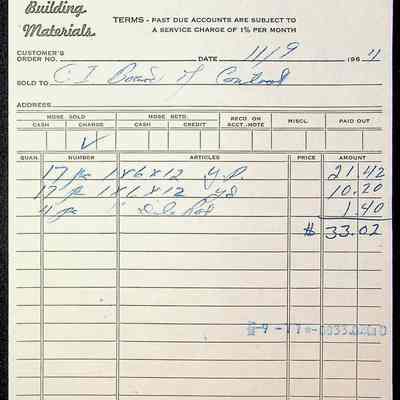 Building
Materials.
TERMS - PAST DUE ACCOUNTS ARE SUBJECT TO
A SERVICE CHARGE OF 1% PER MONTH
CUSTOMER'S
ORDER NO. DATE 11/9 196
SOLD TO C. I Board of Control
ADDRESS
MDSE. SOLD MDSE. RETD. REC'D ON ACCT.-NOTE MISCL. PAID OUT
CASH CHARGE CASH CREDIT
✓
QUAN. NUMBER ARTICLES PRICE AMOUNT
17 pc 1x6x12 y.p. 21.42
17 pc 1x6x12 10.20
4 pc 1.40
$ 33.02